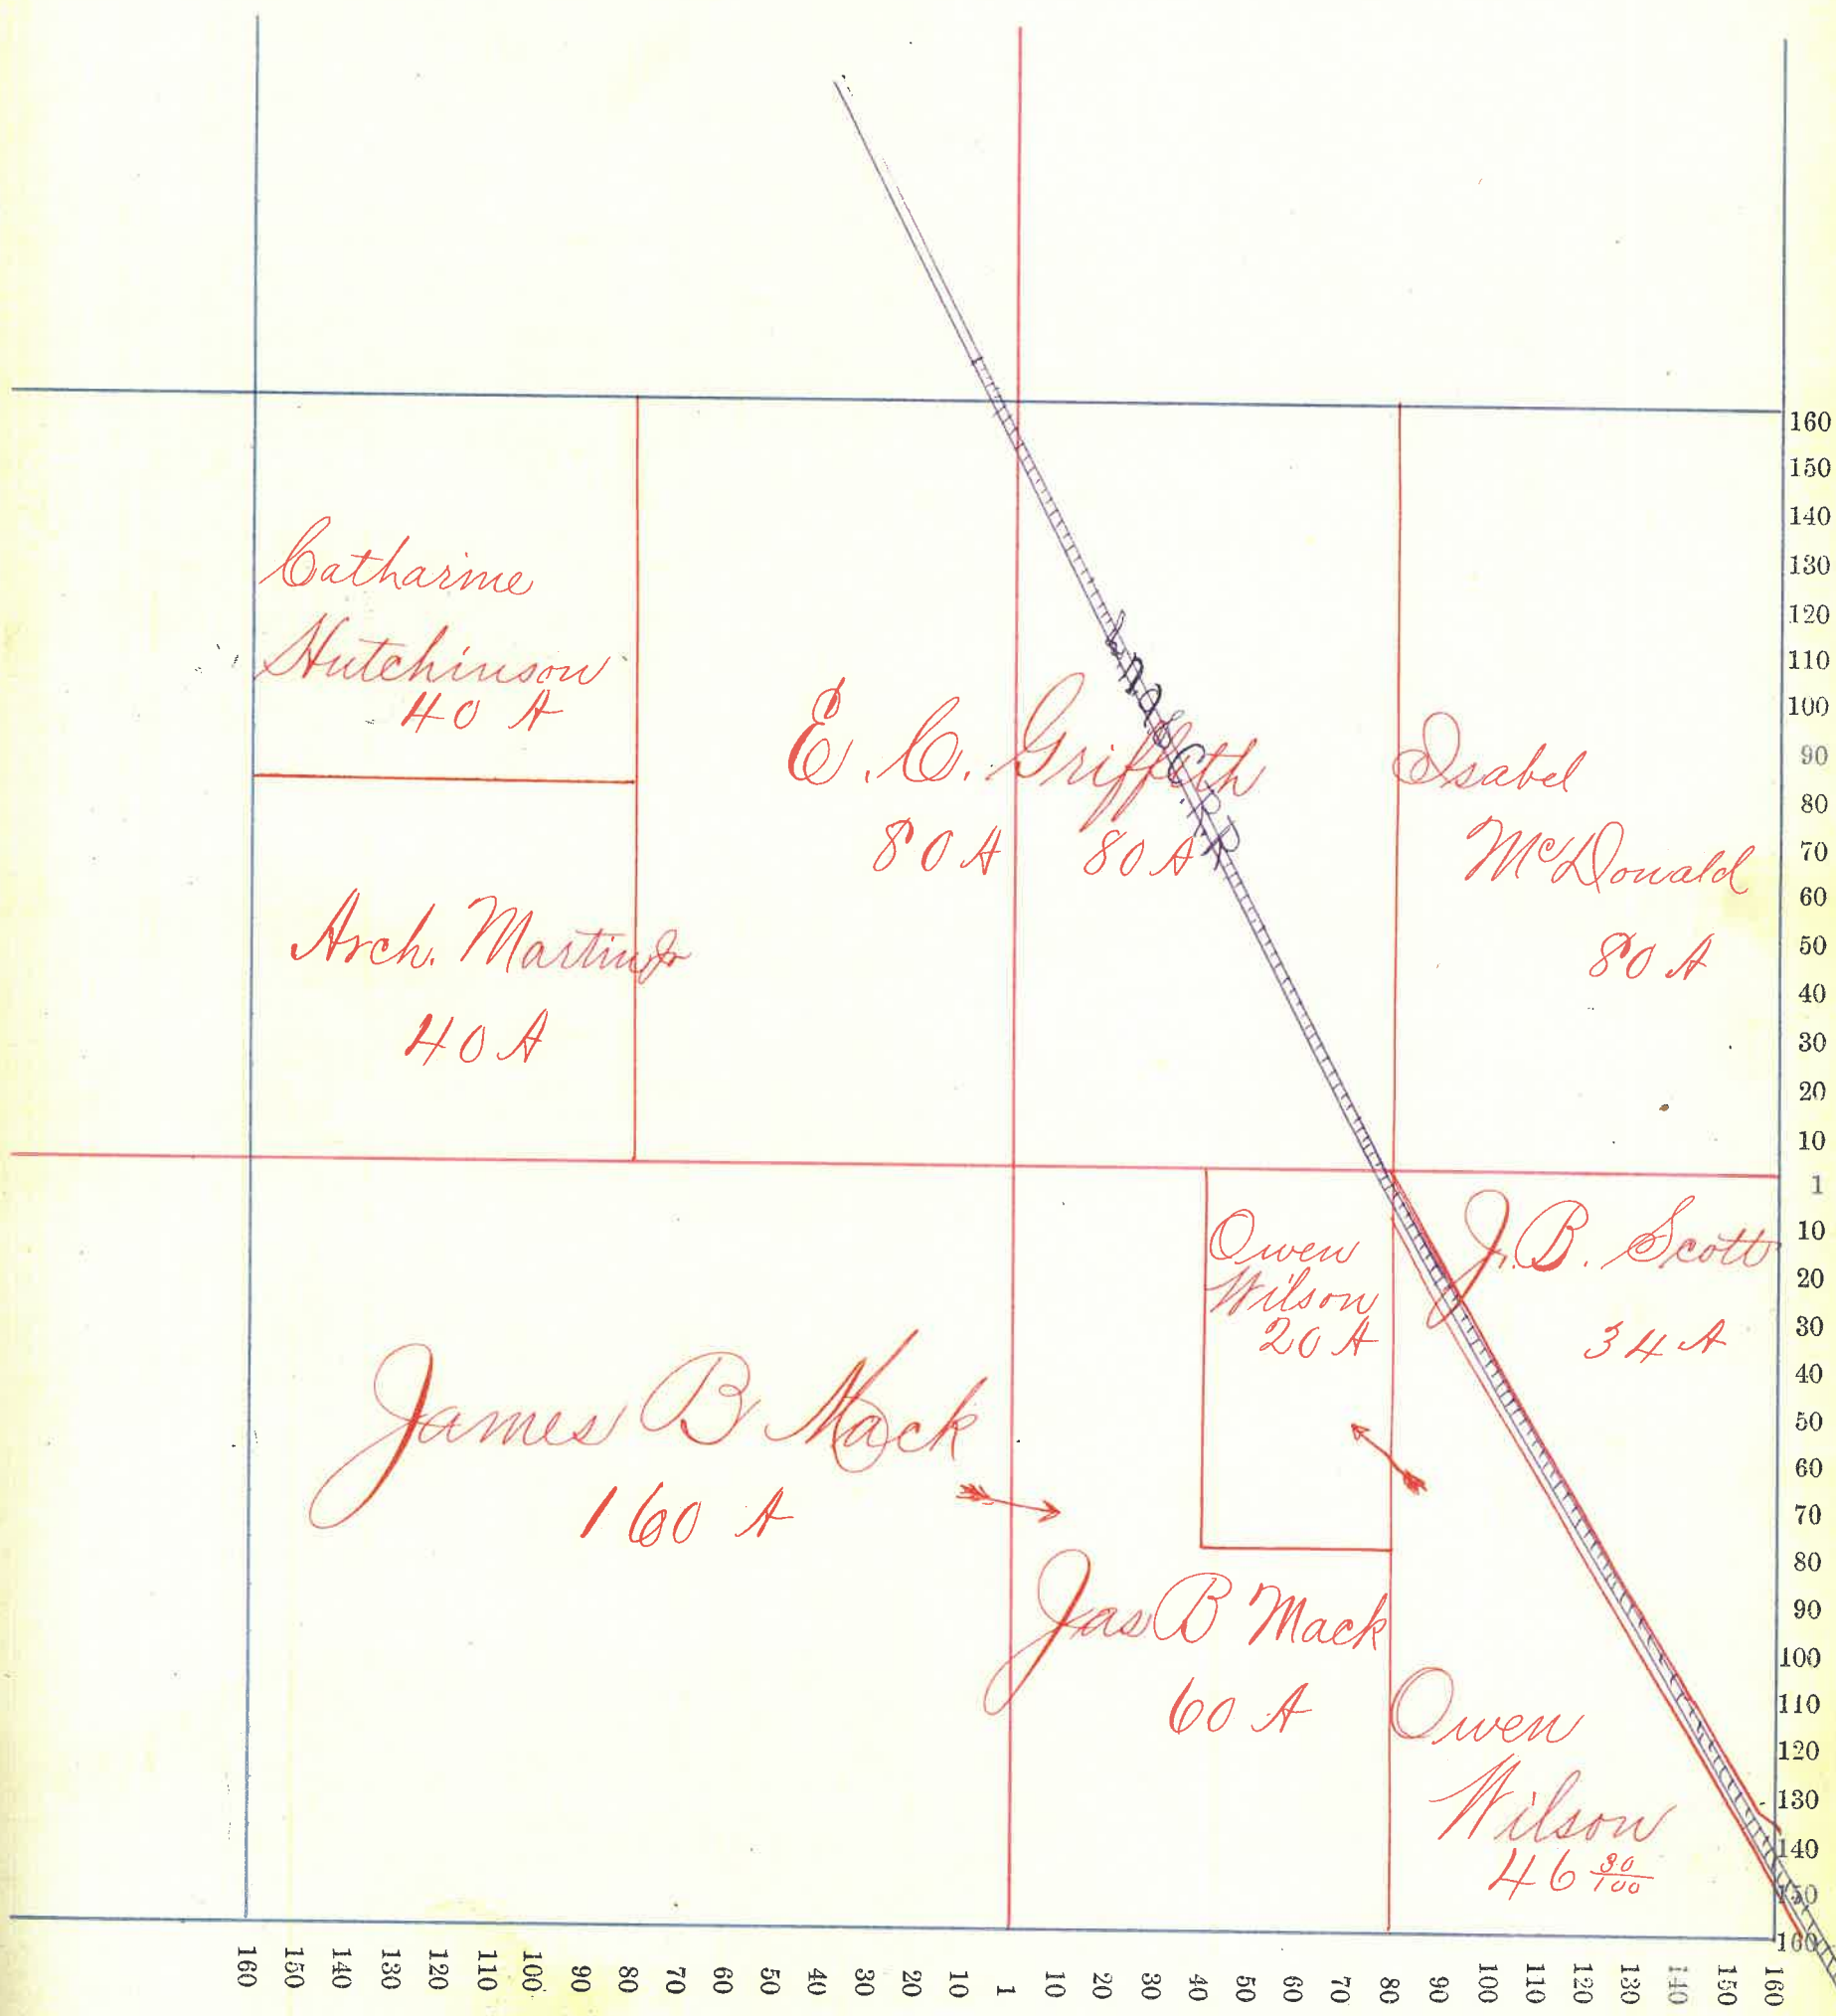 Catharine
Hutchinson
40 A
Arch. Martin Jr
40 A
E. C. Griffith
80 A 80 A
Isabel
McDonald
80 A
James B Mack
160 A
Owen
Wilson
20 A
J. B. Scott
34 A
Jas B Mack
60 A
Owen
Wilson
46 30/100
160
150
140
130
120
110
100
90
80
70
60
50
40
30
20
10
1
10
20
30
40
50
60
70
80
90
100
110
120
130
140
150
160
160 150 140 130 120 110 100 90 80 70 60 50 40 30 20 10 1 10 20 30 40 50 60 70 80 90 100 110 120 130 140 150 160